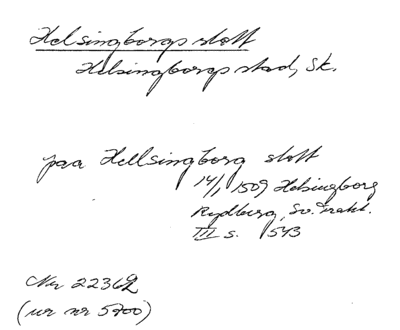 Helsingborgs slott
Helsingborgs stad, Sk.
paa Hellsingborg slott
14/1 1509 Helsingborg
Rydberg, Sv. Trakt.
III s. 543
Nr 22362
(ur nr 5700)